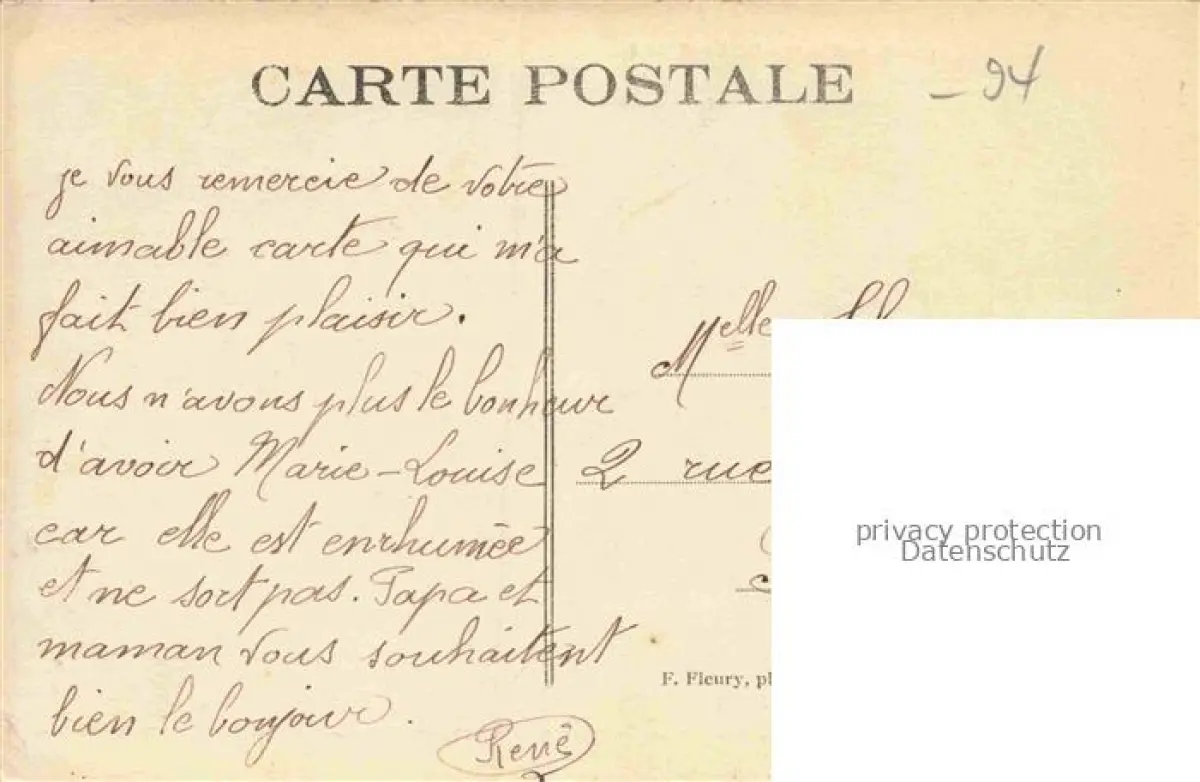 CARTE POSTALE
- 94
je vous remercie de votre
aimable carte qui m'a
fait bien plaisir.
Nous n'avons plus le bonheur
d'avoir Marie-Louise
car elle est enrhumée
et ne sort pas. Papa et
maman vous souhaitent
bien le bonjour.
René
Melle
2 rue
F. Fleury, ph
privacy protection
Datenschutz